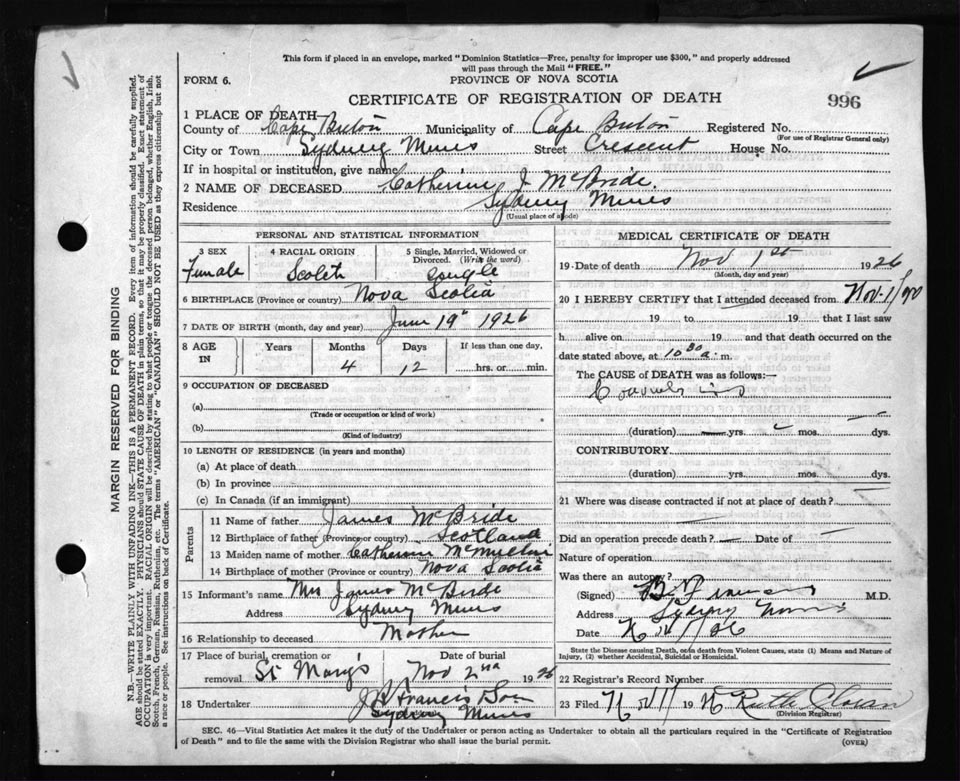 This form if placed in an envelope, marked "Dominion Statistics—Free, penalty for improper use $300," and properly addressed
will pass through the Mail "FREE."
FORM 6.
PROVINCE OF NOVA SCOTIA
CERTIFICATE OF REGISTRATION OF DEATH
996
1 PLACE OF DEATH—
County of Cape Breton Municipality of Cape Breton Registered No.
(For use of Registrar General only)
City or Town Sydney Mines Street Crescent House No.
If in hospital or institution, give name
2 NAME OF DECEASED Catherine J McBride.
Residence Sydney Mines
(Usual place of abode)
PERSONAL AND STATISTICAL INFORMATION
3 SEX 4 RACIAL ORIGIN 5 Single, Married, Widowed or
Divorced. (Write the word)
Female Scotch Single
6 BIRTHPLACE (Province or country) Nova Scotia
7 DATE OF BIRTH (month, day and year) June 19th 1926
8 AGE IN Years Months Days If less than one day,
4 12 hrs. or min.
9 OCCUPATION OF DECEASED
(a)
(Trade or occupation or kind of work)
(b)
(Kind of industry)
10 LENGTH OF RESIDENCE (in years and months)
(a) At place of death
(b) In province
(c) In Canada (if an immigrant)
Parents
11 Name of father James McBride
12 Birthplace of father (Province or country) Scotland
13 Maiden name of mother Catherine
14 Birthplace of mother (Province or country) Nova Scotia
15 Informant's name Mrs James McBride
Address Sydney Mines
16 Relationship to deceased Mother
17 Place of burial, cremation or Date of burial
removal St Mary's Nov 2nd 1926
18 Undertaker Francis Son
Sydney Mines
MEDICAL CERTIFICATE OF DEATH
19 Date of death Nov 1st 1926
(Month, day and year)
20 I HEREBY CERTIFY that I attended deceased from Nov 1/
19 to 19 that I last saw
h alive on 19 and that death occurred on the
date stated above, at 10 30 a. m.
The CAUSE OF DEATH was as follows:—
Convulsions
(duration) yrs. mos. dys.
CONTRIBUTORY
(duration) yrs. mos. dys.
21 Where was disease contracted if not at place of death?
Did an operation precede death? Date of
Nature of operation
Was there an autopsy?
(Signed) M.D.
Address Sydney Mines
Date Nov 1/26
State the Disease causing Death, or in death from Violent Causes, state (1) Means and Nature of
Injury, (2) whether Accidental, Suicidal or Homicidal.
22 Registrar's Record Number
23 Filed Nov 1 1926 Ruth
(Division Registrar)
SEC. 46—Vital Statistics Act makes it the duty of the Undertaker or person acting as Undertaker to obtain all the particulars required in the "Certificate of Registration
of Death" and to file the same with the Division Registrar who shall issue the burial permit.
(OVER)
MARGIN RESERVED FOR BINDING
N.B.—WRITE PLAINLY WITH UNFADING INK—THIS IS A PERMANENT RECORD. Every item of information should be carefully supplied.
AGE should be stated EXACTLY. PHYSICIANS should STATE CAUSE OF DEATH in plain terms, so that it may be properly classified. Exact statement of
OCCUPATION is very important. RACIAL ORIGIN will be described by stating to what people or tongue the deceased person belonged, whether English, Irish,
Scotch, French, German, Russian, Ruthenian, etc. The terms "AMERICAN" or "CANADIAN" SHOULD NOT BE USED as they express citizenship but not
a race or people. See instructions on back of Certificate.